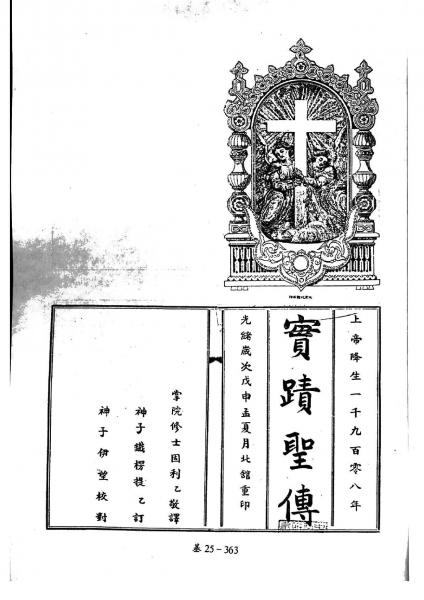 上帝降生一千九百零八年
實蹟聖傳
光緒歲次戊申孟夏月北舘重印
掌院修士因利乙敬譯
神子鐵楞提乙訂
神子伊望校對
基 25－363